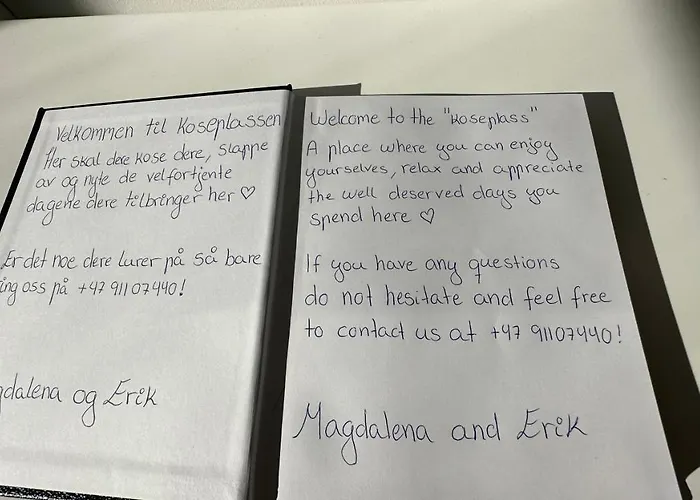 Velkommen til Koseplassen
Her skal dere kose dere, slappe
av og nyte de velfortjente
dagene dere tilbringer her ♡
Er det noe dere lurer på så bare
ing oss på +47 91107440!
gdalena og Erik
Welcome to the "Koseplass"
A place where you can enjoy
yourselves, relax and appreciate
the well deserved days you
spend here ♡
If you have any questions
do not hesitate and feel free
to contact us at +47 91107440!
Magdalena and Erik